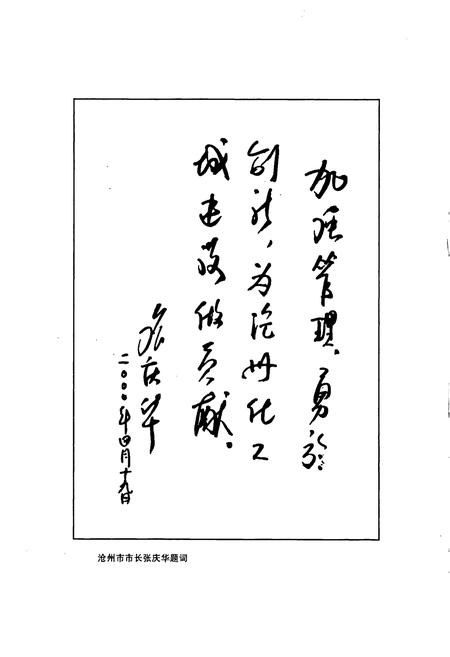 加强管理，勇于
创新，为沧州化工
城建设做贡献。
张庆华
二000年四月十九日
沧州市市长张庆华题词